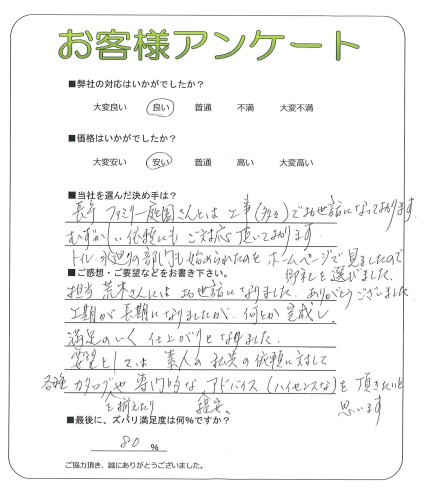 お客様アンケート
■弊社の対応はいかがでしたか?
大変良い 良い 普通 不満 大変不満
■価格はいかがでしたか?
大変安い 安い 普通 高い 大変高い
■当社を選んだ決め手は?
長年 ファミリー庭園さんとは 工事(多々)でお世話になっております
むずかしい依頼にも ご対応 頂いております
トイレ、水廻りの部門も始められたのを ホームページで見ましたので
御社を選びました。
■ご感想・ご要望などをお書き下さい。
担当 荒木さんには お世話になりました。ありがとうございました
工期が 長期になりましたが、何とか 完成し、
満足のいく 仕上がりとなりました。
要望としては 素人の私共の依頼に対して
各種カタログや 専門的な アドバイス(ハイセンスな)を 頂きたいと
を揃えたり 提案、 思います
■最後に、ズバリ満足度は何%ですか?
80 %
ご協力頂き、誠にありがとうございました。